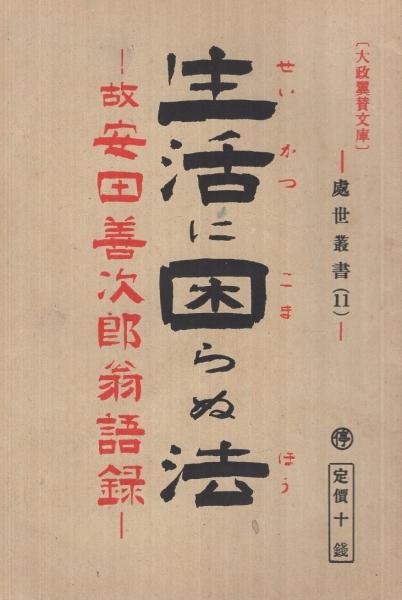 〔大政翼賛文庫〕
―處世叢書(11)―
生活に困らぬ法
せいかつ こま ほう
―故安田善次郎翁語録―
停
定價十錢